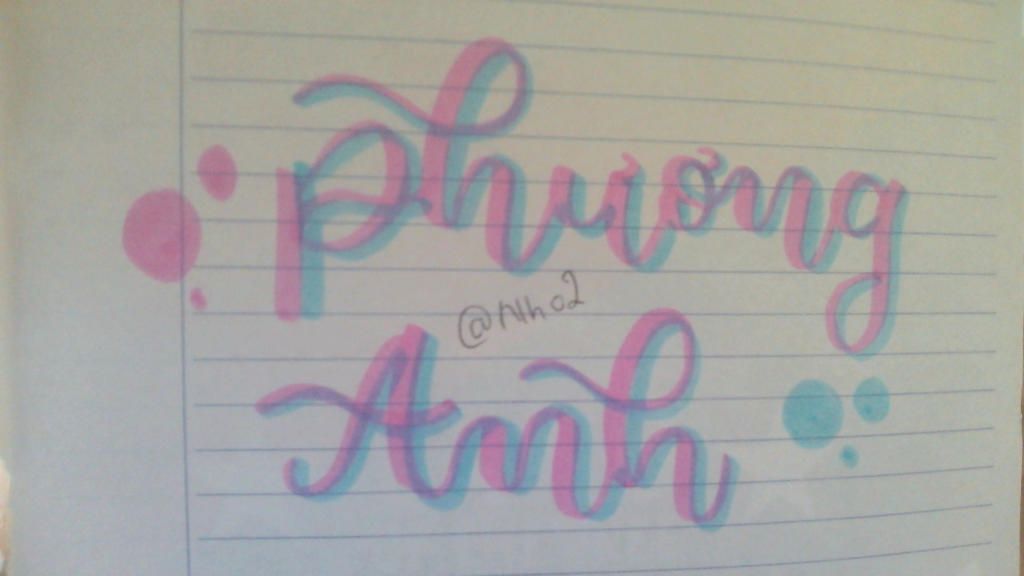 Phương
@Nh02
Anh